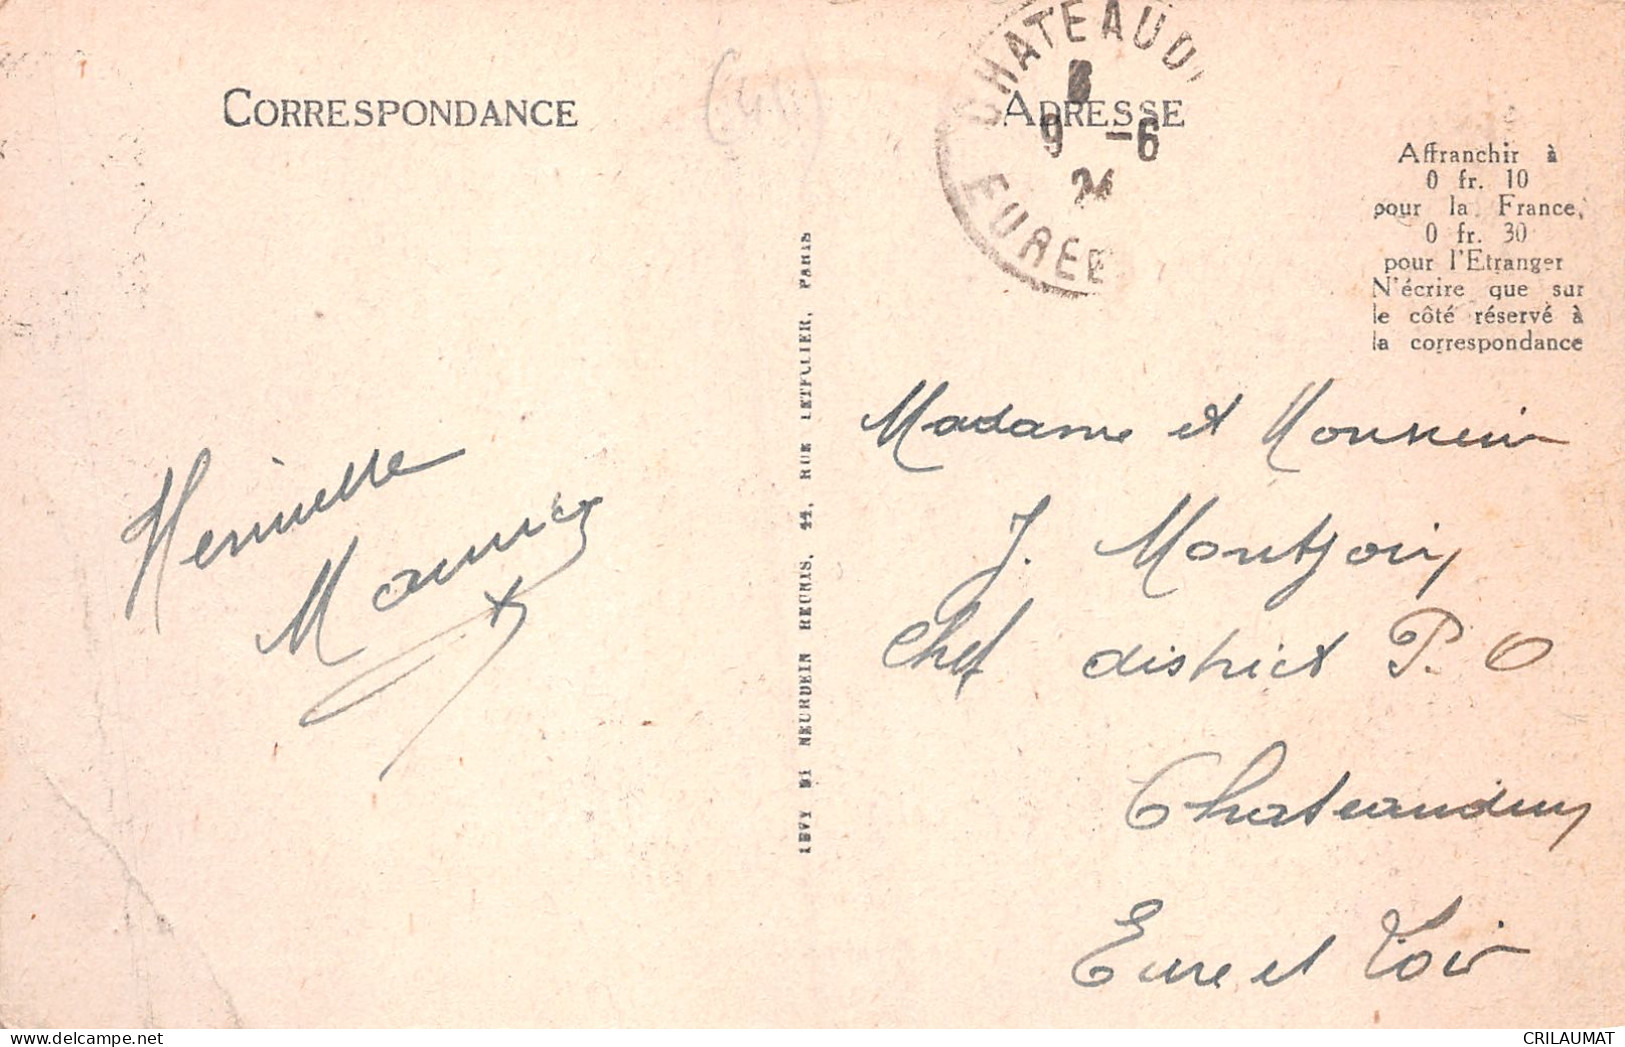 CORRESPONDANCE
ADRESSE
CHATEAUD
8
9 -6
24
EURE E
Affranchir à
0 fr. 10
pour la France,
0 fr. 30
pour l'Etranger
N'écrire que sur
le côté réservé à
la correspondance
LEVY ET NEURDEIN REUNIS, 44, RUE LETELLIER, PARIS
Madame et Monsieur
J. Montjoin
Chef district P. O
Chateaudun
Eure et Loir
CRILAUMAT